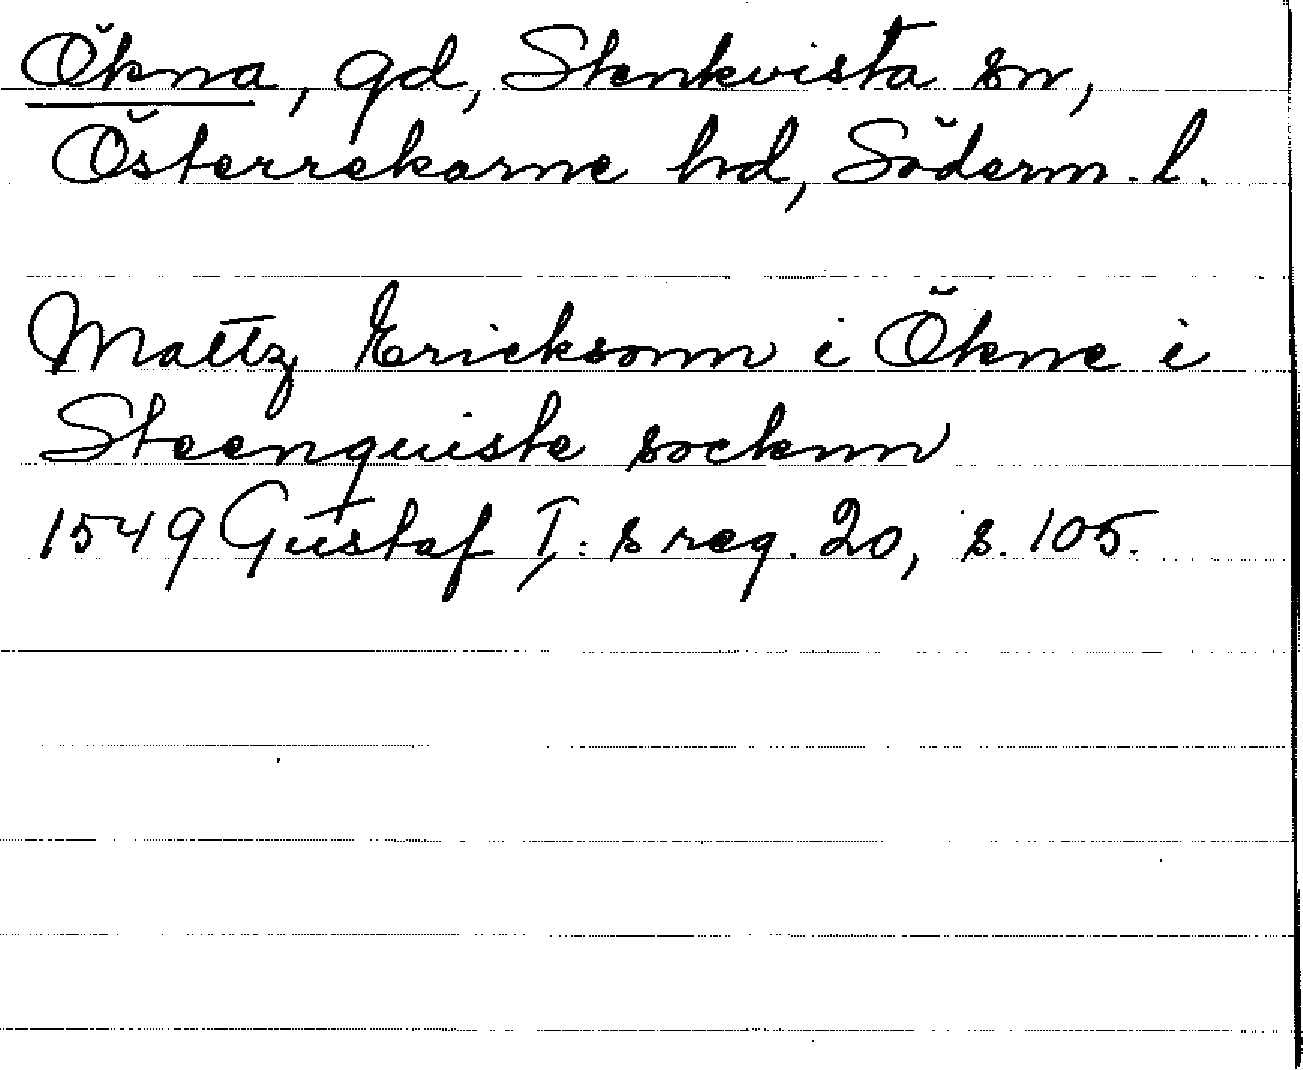 Ökna, gd, Stenkvista sn,
Österrekarne hd, Söderm. l.
Mattz Ericksonn i Ökne i
Steenquiste socknn
1549 Gustaf I: s reg. 20, s. 105.